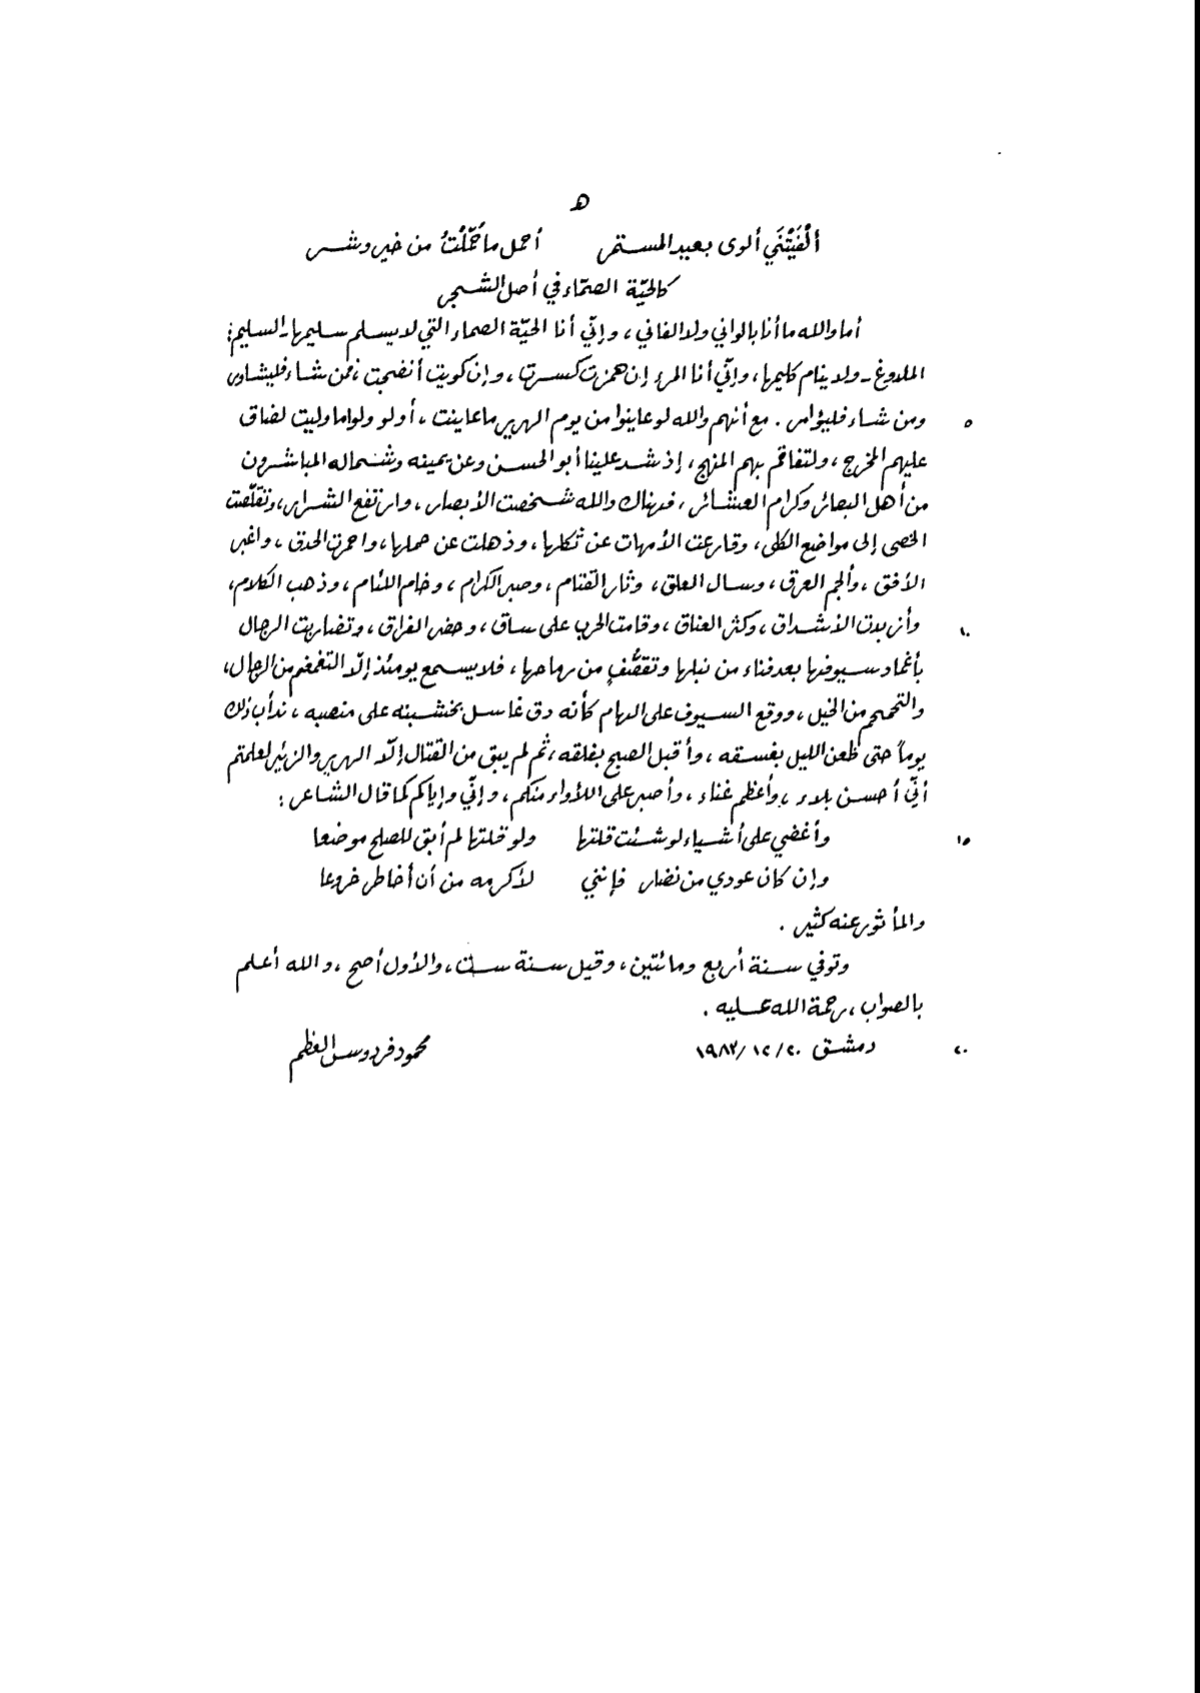 هـ
ألْفَيْتَني ألوى بعيد المستمر    أحمل ما حُمِّلْتُ من خير وشـر
كالحيّة الصمّاء في أصل الشـجر
أما والله ما أنا بالواني ولا الفاني ، وإنّي أنا الحيّة الصماء التي لا يسلم سليمها - السليم :
الملدوغ - ولا ينام كليمها ، وإنّي أنا المرء إن همزت كسرت ، وإن كويت أنضجت ، فمن شاء فليشاور
٥ ومن شاء فليؤامر . مع أنهم والله لو عاينوا من يوم الهرير ما عاينت ، أو لو ولوا ما وليت لضاق
عليهم المخرج ، ولتفاقم بهم المنهج ، إذ شد علينا أبو الحسن وعن يمينه وشماله المباشرون
من أهل البصائر وكرام العشائر ، فهناك والله شخصت الأبصار ، وارتفع الشرار ، وتقلّصت
الخصى إلى مواضع الكلى ، وقارعت الأمهات عن ثكلها ، وذهلت عن حملها ، واحمرت الحدق ، واغبر
الأفق ، وألجم العرق ، وسال العلق ، وثار القتام ، وصبر الكرام ، وخام اللئام ، وذهب الكلام ،
١٠ وأزبدت الأشداق ، وكثر العناق ، وقامت الحرب على ساق ، وحضر الفراق ، وتضاربت الرجال
بأغماد سيوفها بعد فناء من نبلها وتقصُّفٍ من رماحها ، فلا يسمع يومئذ إلّا التغمغم من الرجال ،
والتحمحم من الخيل ، ووقع السيوف على الهام كأنه دق غاسل بخشبته على منصبه ، ندأب ذلك
يوماً حتى ظعن الليل بغسقه ، وأقبل الصبح بفلقه ، ثم لم يبق من القتال إلّا الهرير والزئير لعلمتم
أنّي أحسن بلاء ، وأعظم غناء ، وأصبر على اللأواء منكم ، وإنّي وإياكم كما قال الشاعر :
١٥ وأغضي على أشياء لو شئت قلتها    ولو قلتها لم أبق للصلح موضعا
وإن كان عودي من نضار فإنني    لأكرمه من أن أخاطر خروعا
والمأثور عنه كثير .
وتوفي سنة أربع ومائتين ، وقيل سنة ست ، والأول أصح ، والله أعلم
بالصواب ، رحمة الله عليه .
٢٠ دمشق ٢٠/١٢/١٩٨٣    محمود فردوس العظم